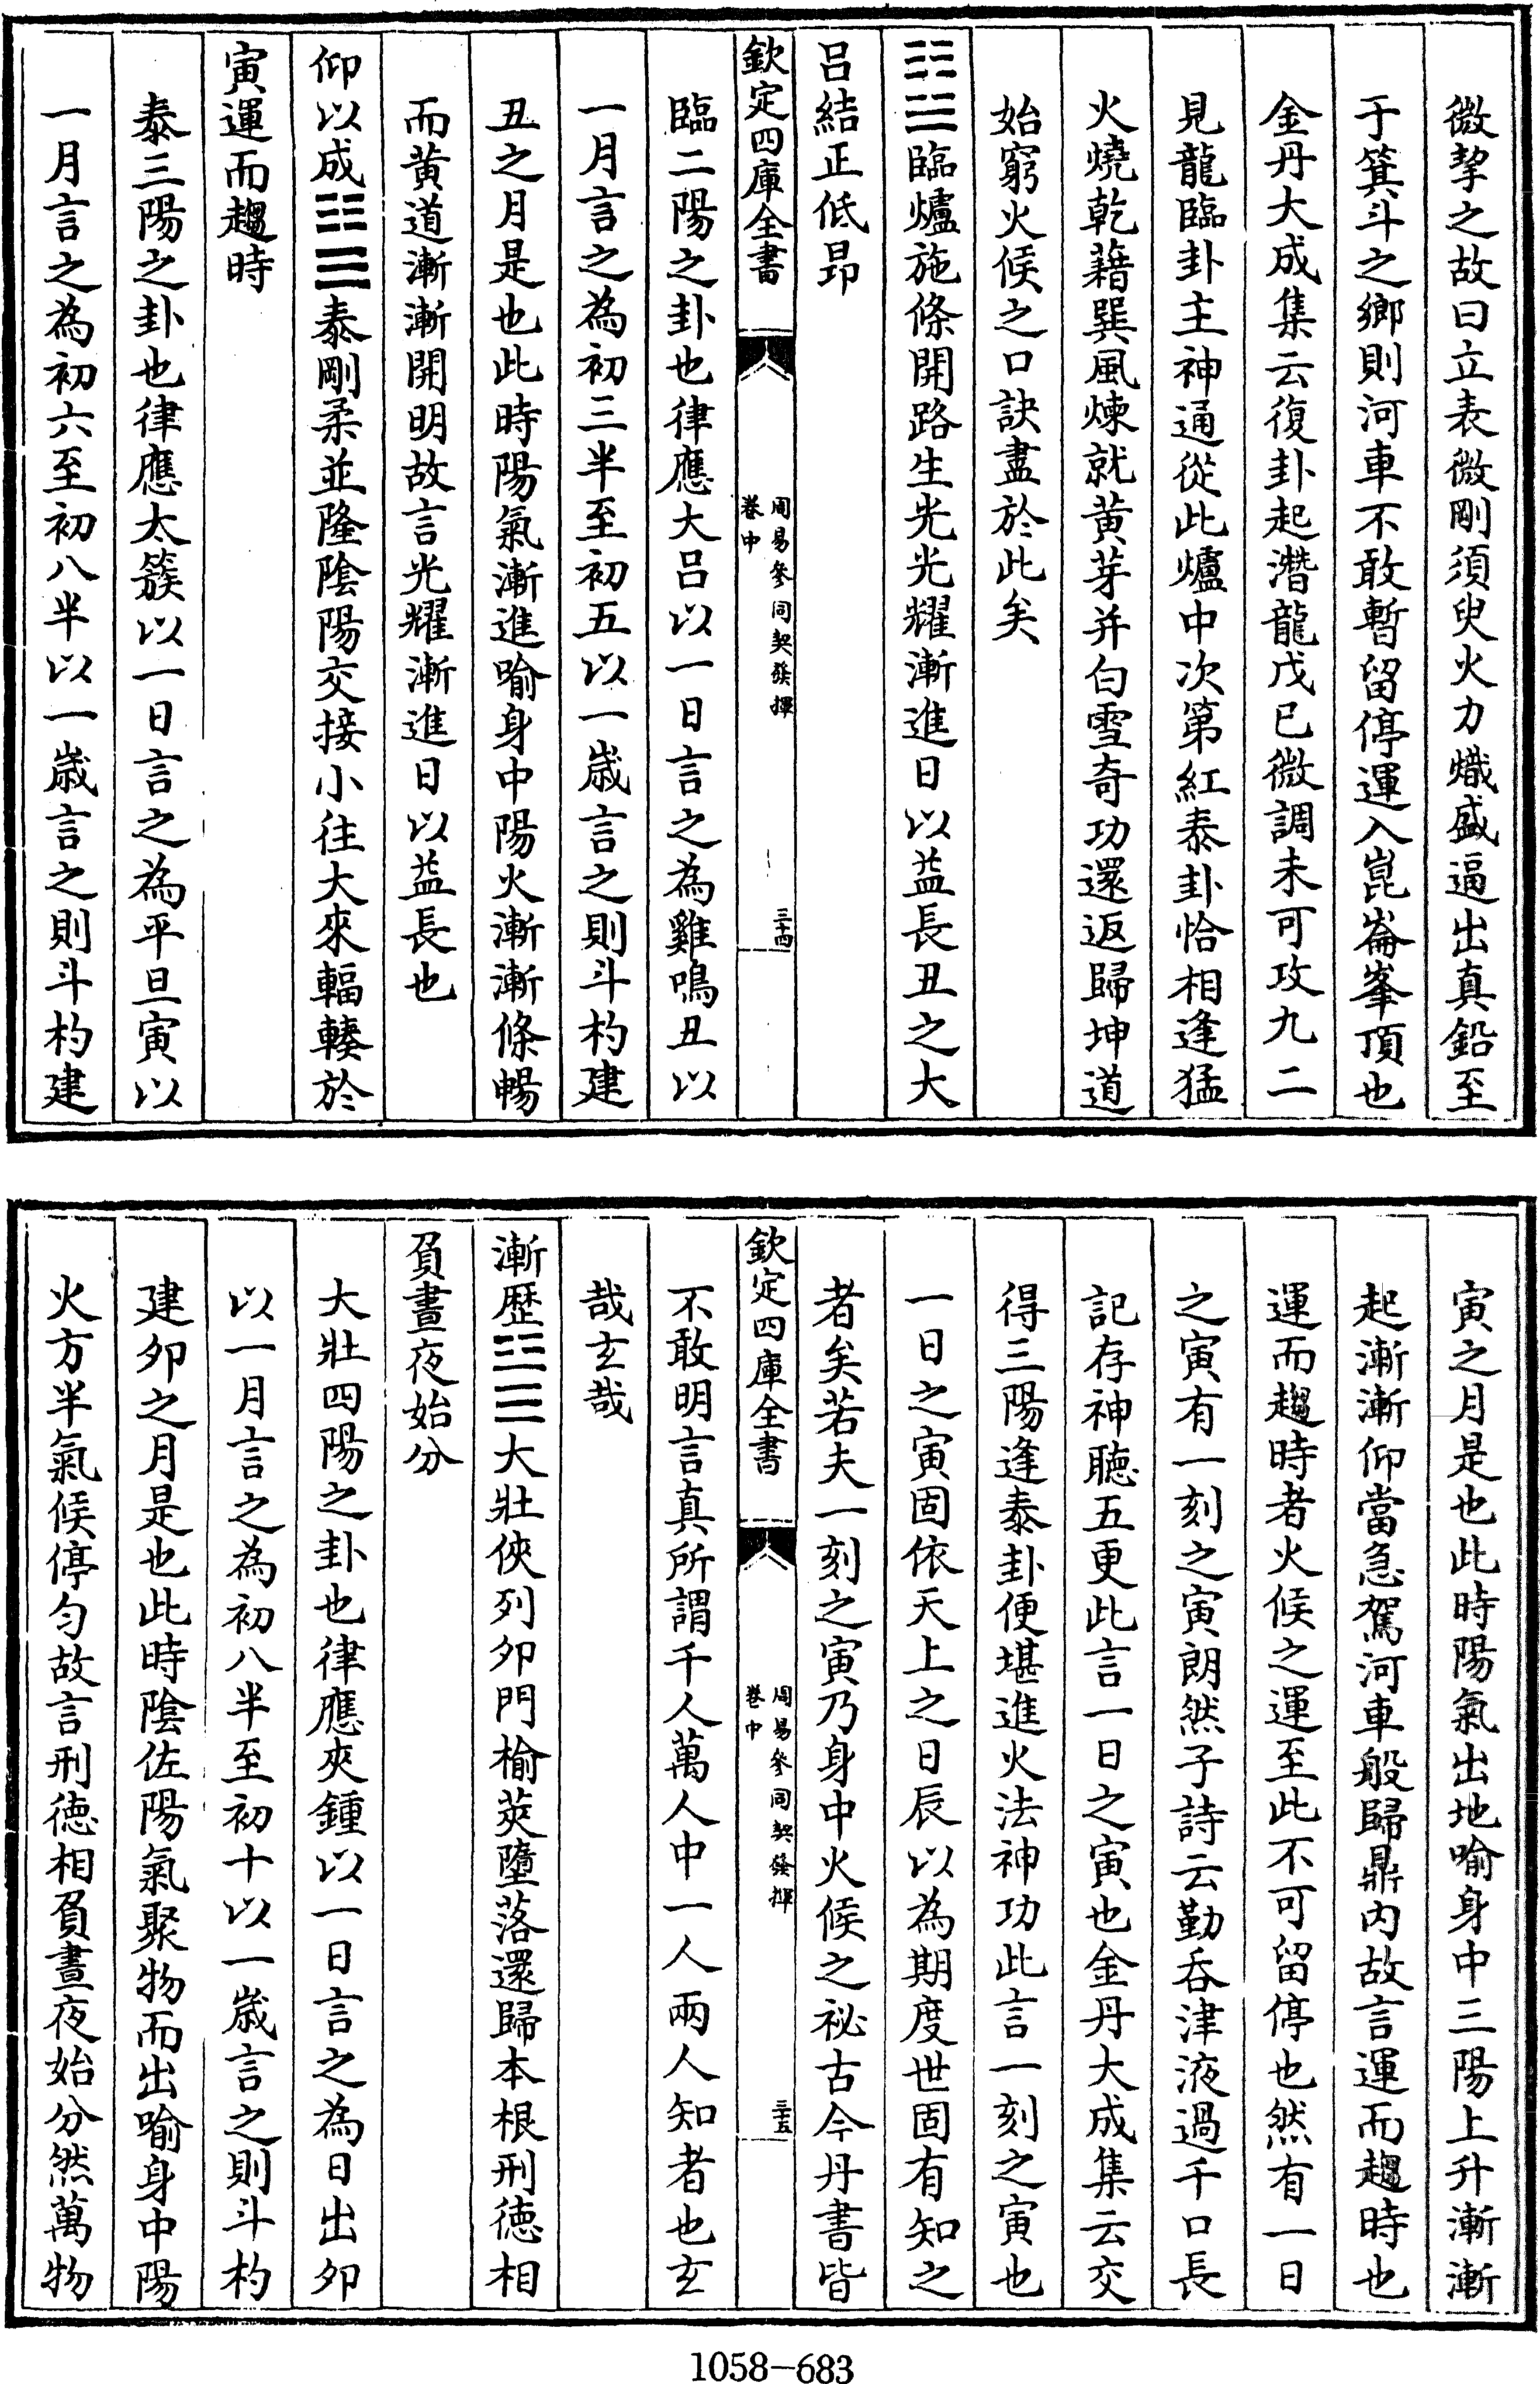 微挚之故曰立表微剛須臾火力熾盛逼出真鉛至
于箕斗之鄉則河車不敢暫留停運入崑崙峯頂也
金丹大成集云復卦起潛龍戊已微調未可攻九二
見龍臨卦主神通從此爐中次第紅泰卦恰相逢猛
火燒乾藉巽風煉就黄芽并白雪奇功還返歸坤道
始窮火候之口訣盡於此矣
䷒臨爐施條開路生光光耀漸進日以益長丑之大
吕結正低昂
欽定四庫全書
周易參同契發揮
卷中
三十四
臨二陽之卦也律應大吕以一日言之為雞鳴丑以
一月言之為初三半至初五以一歲言之則斗杓建
丑之月是也此時陽氣漸進喻身中陽火漸漸條暢
而黄道漸漸開明故言光耀漸進日以益長也
仰以成䷊泰剛柔並隆陰陽交接小往大來輻輳於
寅運而趨時
泰三陽之卦也律應太簇以一日言之為平旦寅以
一月言之為初六至初八半以一歲言之則斗杓建
寅之月是也此時陽氣出地喻身中三陽上升漸漸
起漸漸仰當急駕河車般歸鼎内故言運而趨時也
運而趨時者火候之運至此不可留停也然有一日
之寅有一刻之寅朗然子詩云勤吞津液過千口長
記存神聽五更此言一日之寅也金丹大成集云交
得三陽逢泰卦便堪進火法神功此言一刻之寅也
一日之寅固依天上之日辰以為期度世固有知之
者矣若夫一刻之寅乃身中火候之祕古今丹書皆
欽定四庫全書
周易參同契發揮
卷中
三十五
不敢明言真所謂千人萬人中一人兩人知者也玄
哉玄哉
漸歷䷡大壯俠列夘門榆莢墮落還歸本根刑德相
負晝夜始分
大壯四陽之卦也律應夾鍾以一日言之為日出夘
以一月言之為初八半至初十以一歲言之則斗杓
建夘之月是也此時陰佐陽氣聚物而出喻身中陽
火方半氣候停勻故言刑德相負晝夜始分然萬物
1058-683